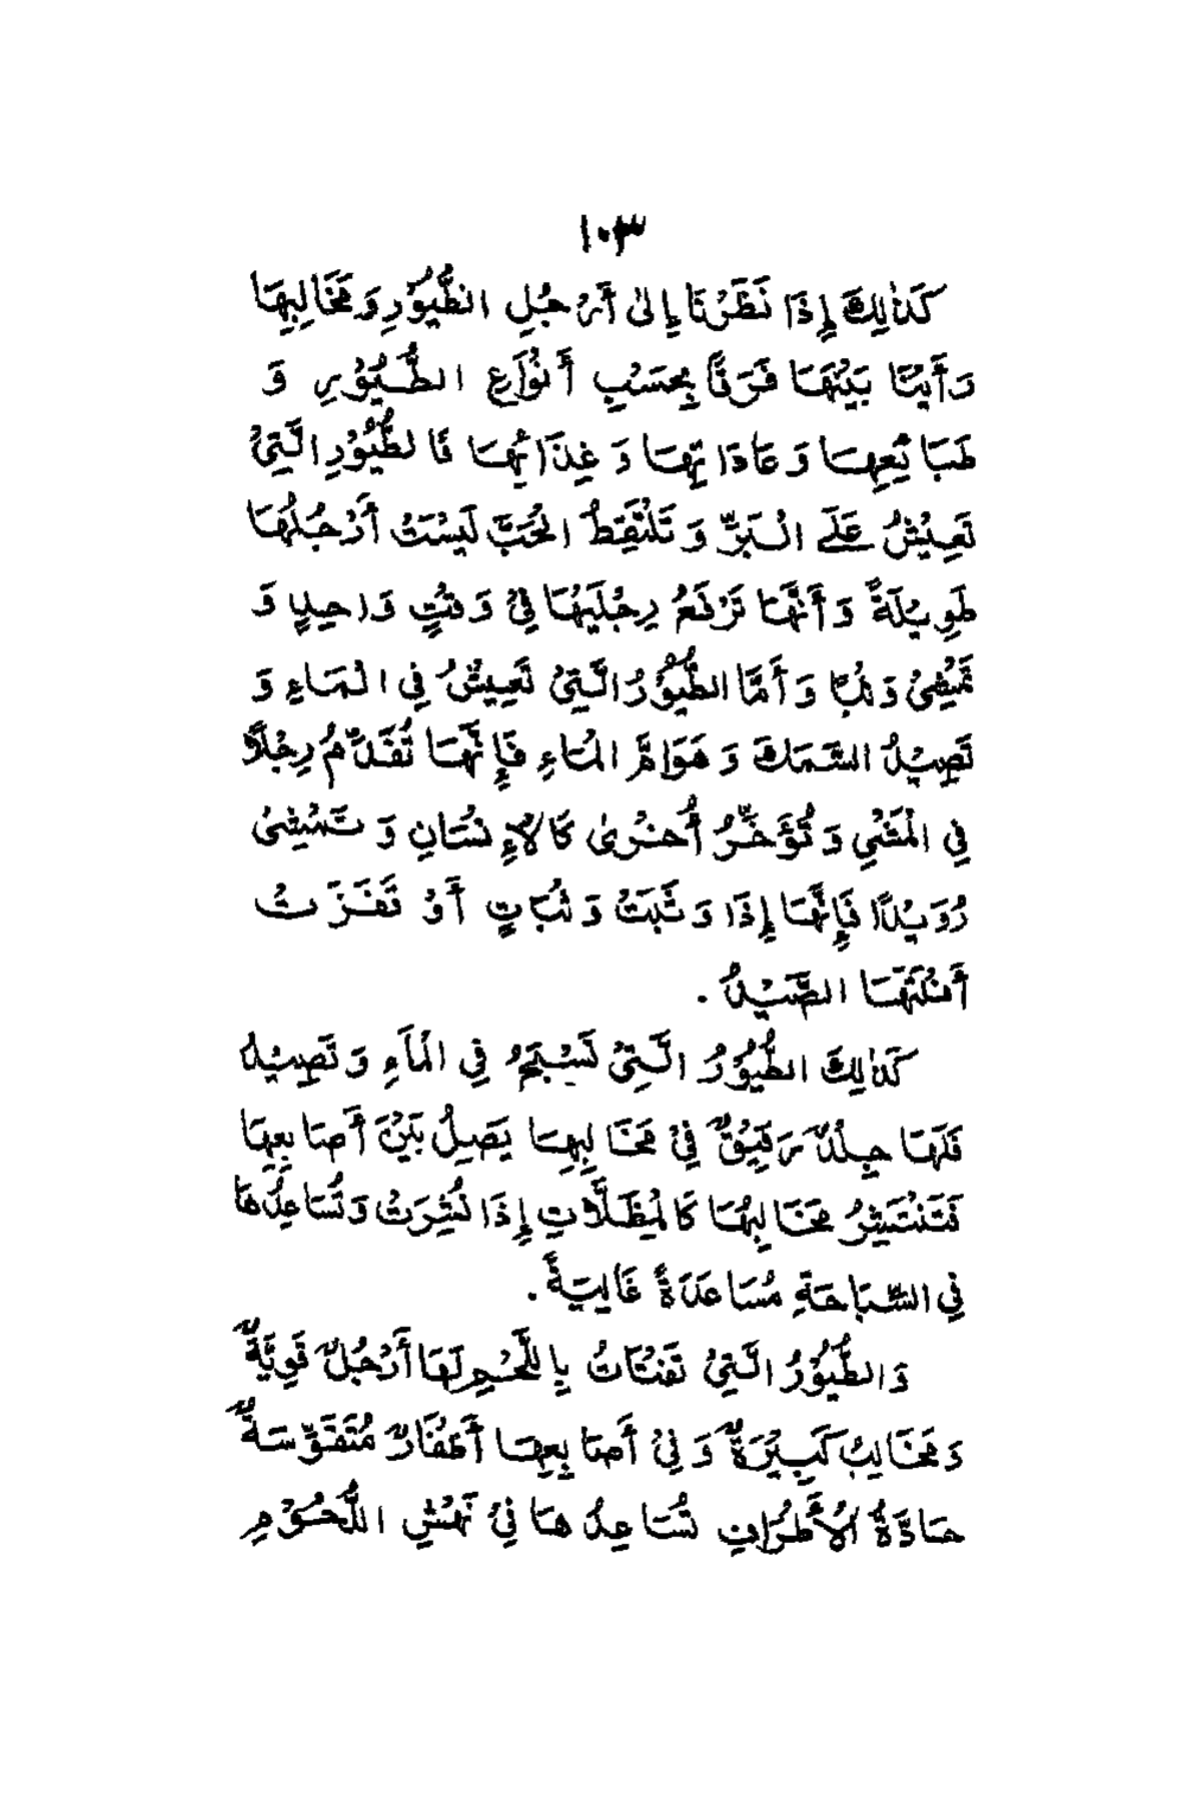 ١٠٣
كَذٰلِكَ إِذَا نَظَرْنَا إِلىٰ أَرْجُلِ الطُّيُوْرِ وَمَخَالِبِهَا
رَأَيْنَا بَيْنَهَا فَرَقًا بِحَسْبِ أَنْوَاعِ الطُّيُوْرِ وَ
طَبَائِعِهَا وَعَادَاتِهَا وَغِذَائِهَا فَالطُّيُوْرِ الَّتِيْ
تَعِيْشُ عَلَى الْبَرِّ وَتَلْتَقِطُ الْحَبَّ لَيْسَتْ أَرْجُلُهَا
طَوِيْلَةً وَأَنَّهَا تَرْفَعُ رِجْلَيْهَا فِيْ وَقْتٍ وَاحِدٍ وَ
تَمْشِيْ وَثْبًا وَأَمَّا الطُّيُوْرُ الَّتِيْ تَعِيْشُ فِي الْمَاءِ وَ
تَصِيْدُ السَّمَكَ وَهَوَامَّ الْمَاءِ فَإِنَّهَا تُقَدِّمُ رِجْلًا
فِي الْمَشْيِ وَتُؤَخِّرُ أُخْرىٰ كَالْإِنْسَانِ وَتَمْشِيْ
رُوَيْدًا فَإِنَّهَا إِذَا وَثَبَتْ وَثْبَاتٍ أَوْ قَفَزَتْ
أَفْلَتَهَا الصَّيْدُ .
كَذٰلِكَ الطُّيُوْرُ الَّتِيْ تَسْبَحُ فِي الْمَاءِ وَتَصِيْدُ
فَلَهَا جِلْدٌ رَقِيْقٌ فِيْ مَخَالِبِهَا يَصِلُ بَيْنَ أَصَابِعِهَا
فَتَنْتَشِرُ مَخَالِبُهَا كَالْمِظَلَّاتِ إِذَا نُشِرَتْ وَتُسَاعِدُهَا
فِي السِّبَاحَةِ مُسَاعَدَةً غَالِيَةً .
وَالطُّيُوْرُ الَّتِيْ تَقْتَاتُ بِاللَّحْمِ لَهَا أَرْجُلٌ قَوِيَّةٌ
وَمَخَالِبُ كَبِيْرَةٌ وَفِيْ أَصَابِعِهَا أَظْفَارٌ مُتَقَوِّسَةٌ
حَادَّةُ الْأَطْرَافِ تُسَاعِدُهَا فِيْ نَهْشِ اللُّحُوْمِ